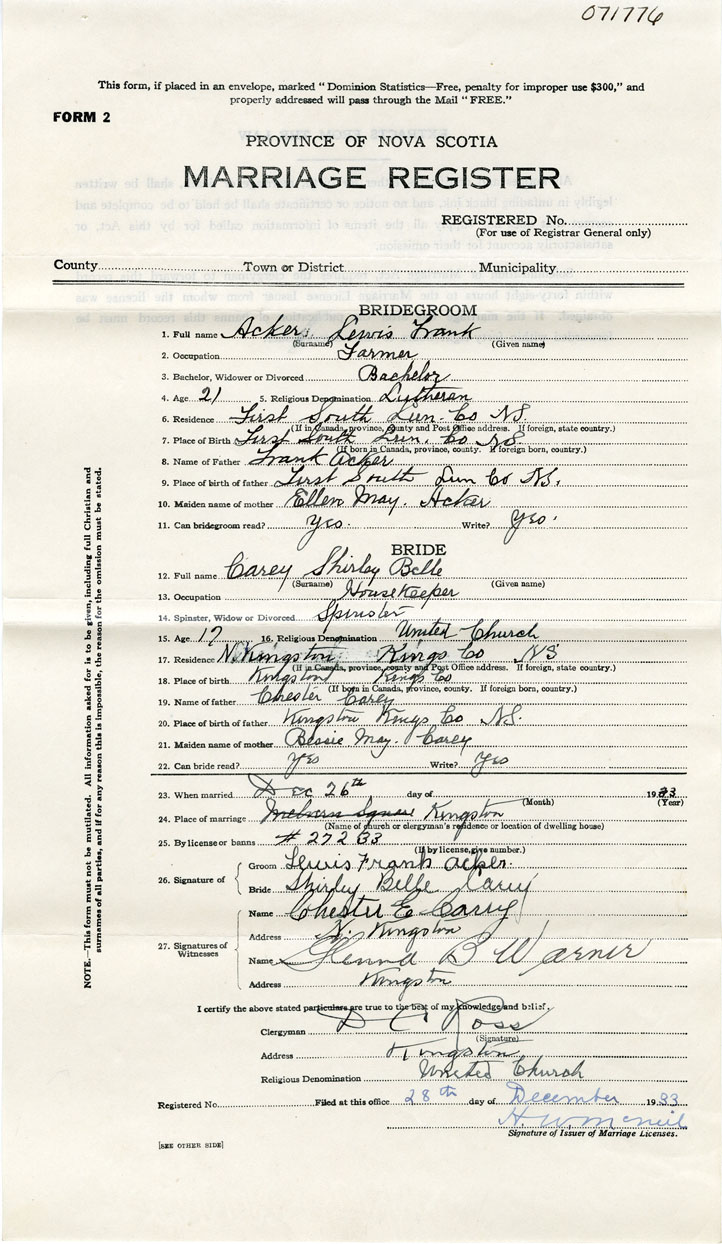 071776
This form, if placed in an envelope, marked "Dominion Statistics—Free, penalty for improper use $300," and
properly addressed will pass through the Mail "FREE."
FORM 2
PROVINCE OF NOVA SCOTIA
MARRIAGE REGISTER
REGISTERED No.
(For use of Registrar General only)
County Town or District Municipality
BRIDEGROOM
1. Full name Acker, Lewis Frank
(Surname) (Given name)
2. Occupation Farmer
3. Bachelor, Widower or Divorced Bachelor
4. Age 21 5. Religious Denomination Lutheran
6. Residence First South Lun. Co NS.
(If in Canada, province, County and Post Office address. If foreign, state country.)
7. Place of Birth First South Lun. Co NS
(If born in Canada, province, county. If foreign born, country.)
8. Name of Father Frank Acker
9. Place of birth of father First South Lun Co NS.
10. Maiden name of mother Ellen May. Acker
11. Can bridegroom read? Yes. Write? Yes.
BRIDE
12. Full name Carey Shirley Belle
(Surname) (Given name)
13. Occupation Housekeeper
14. Spinster, Widow or Divorced Spinster
15. Age 17 16. Religious Denomination United Church
17. Residence N. Kingston, Kings Co NS
(If in Canada, province, county and Post Office address. If foreign, state country.)
18. Place of birth Kingston Kings Co
(If born in Canada, province, county. If foreign born, country.)
19. Name of father Chester Carey
20. Place of birth of father Kingston Kings Co NS.
21. Maiden name of mother Bessie May. Carey
22. Can bride read? Yes Write? Yes
23. When married Dec 26th day of 1933
(Month) (Year)
24. Place of marriage Melvern Square Kingston
(Name of church or clergyman's residence or location of dwelling house)
25. By license or banns # 27233
(If by license, give number.)
26. Signature of
Groom Lewis Frank Acker.
Bride Shirley Belle Carey
27. Signatures of Witnesses
Name Chester E Carey
Address N. Kingston
Name Glenna B Warner
Address Kingston
I certify the above stated particulars are true to the best of my knowledge and belief.
Clergyman Ross
(Signature)
Address Kingston
Religious Denomination United Church
Registered No. Filed at this office 28th day of December 1933
H. W. McNeil
Signature of Issuer of Marriage Licenses.
[SEE OTHER SIDE]
NOTE.—This form must not be mutilated. All information asked for is to be given, including full Christian and
surnames of all parties, and if for any reason this is impossible, the reason for the omission must be stated.